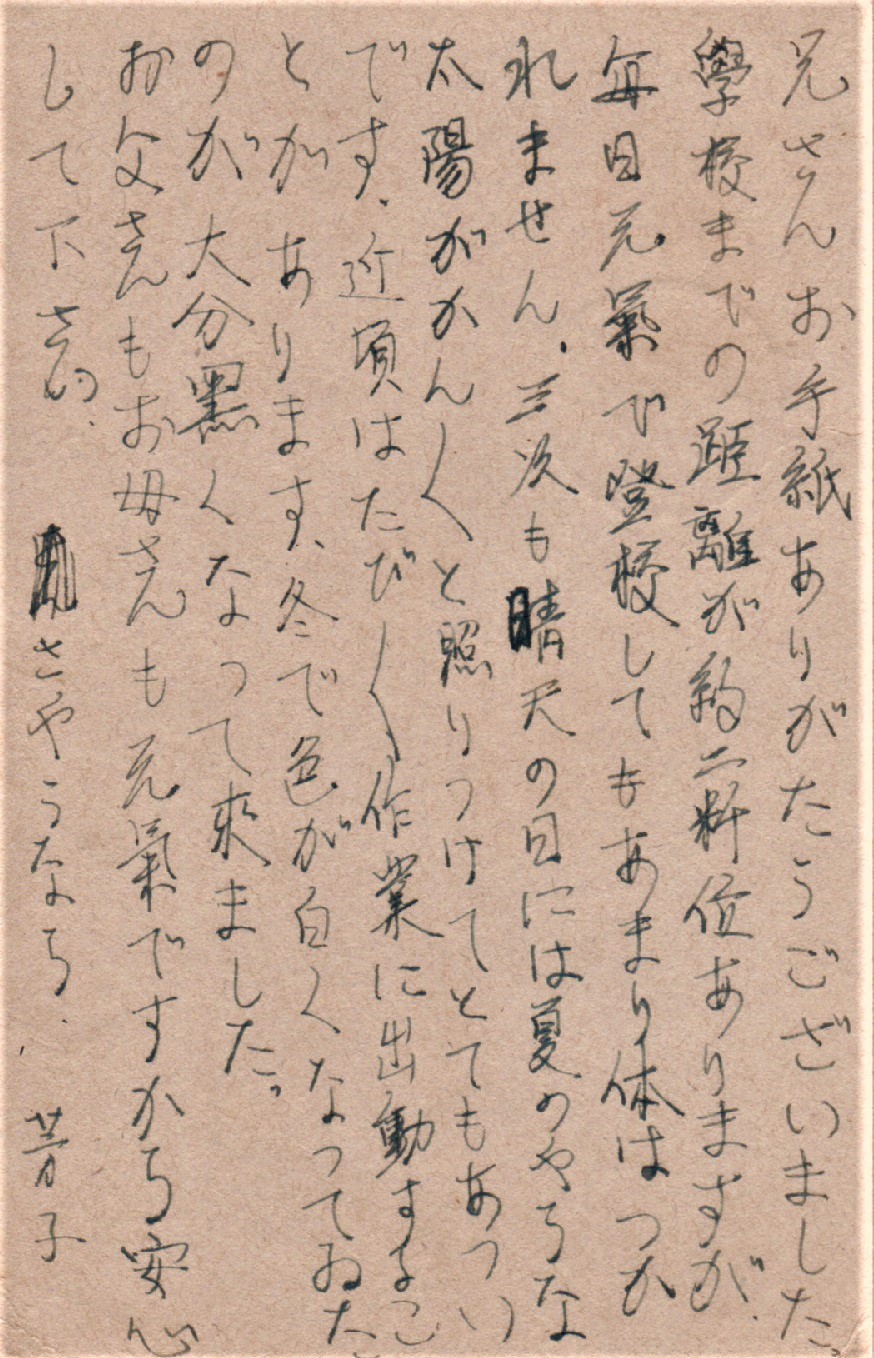 兄さんお手紙ありがたうございました。
學校までの距離が約二粁位ありますが、
毎日元氣で登校してもあまり体はつか
れません。三次も晴天の日には夏のやうな
太陽がかん〱と照りつけてとてもあつい
です、近頃はたび〱作業に出動するこ
とがあります、冬で色が白くなってゐた
のが大分黒くなって來ました。
お父さんもお母さんも元氣ですから安心
して下さい。 さやうなら. 芳子